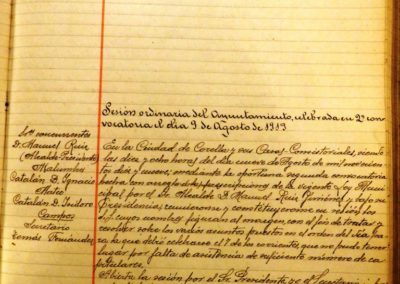 Sesión ordinaria del Ayuntamiento, celebrada en 2ª con-
vocatoria el día 9 de Agosto de 1919
Sres concurrentes
D. Manuel Ruiz
Alcalde Presidente
Malumbres
Catalán D. Ignacio
Mateo
Catalán D. Isidoro
Campos
Secretario
Tomás Fernández
En la Ciudad de Corella y sus Casas Consistoriales, siendo
las diez y ocho horas del día nueve de Agosto de mil novecien-
tos diez y nueve, mediante la oportuna segunda convocatoria
hecha con arreglo a las prescripciones de la vigente Ley Muni-
cipal por el Sr. Alcalde D. Manuel Ruiz Jiménez y bajo su
Presidencia, reunieronse y constituyeronse en sesión los
Sres cuyos nombres figuran al margen, con el fin de tratar y
resolver sobre los varios asuntos puestos en el orden del día para
la que debió celebrarse el 7 de los corrientes, que no pudo tener
lugar por falta de asistencia de suficiente número de ca-
pitulares.
Abierta la sesión por el Sr. Presidente, yo el Secretario